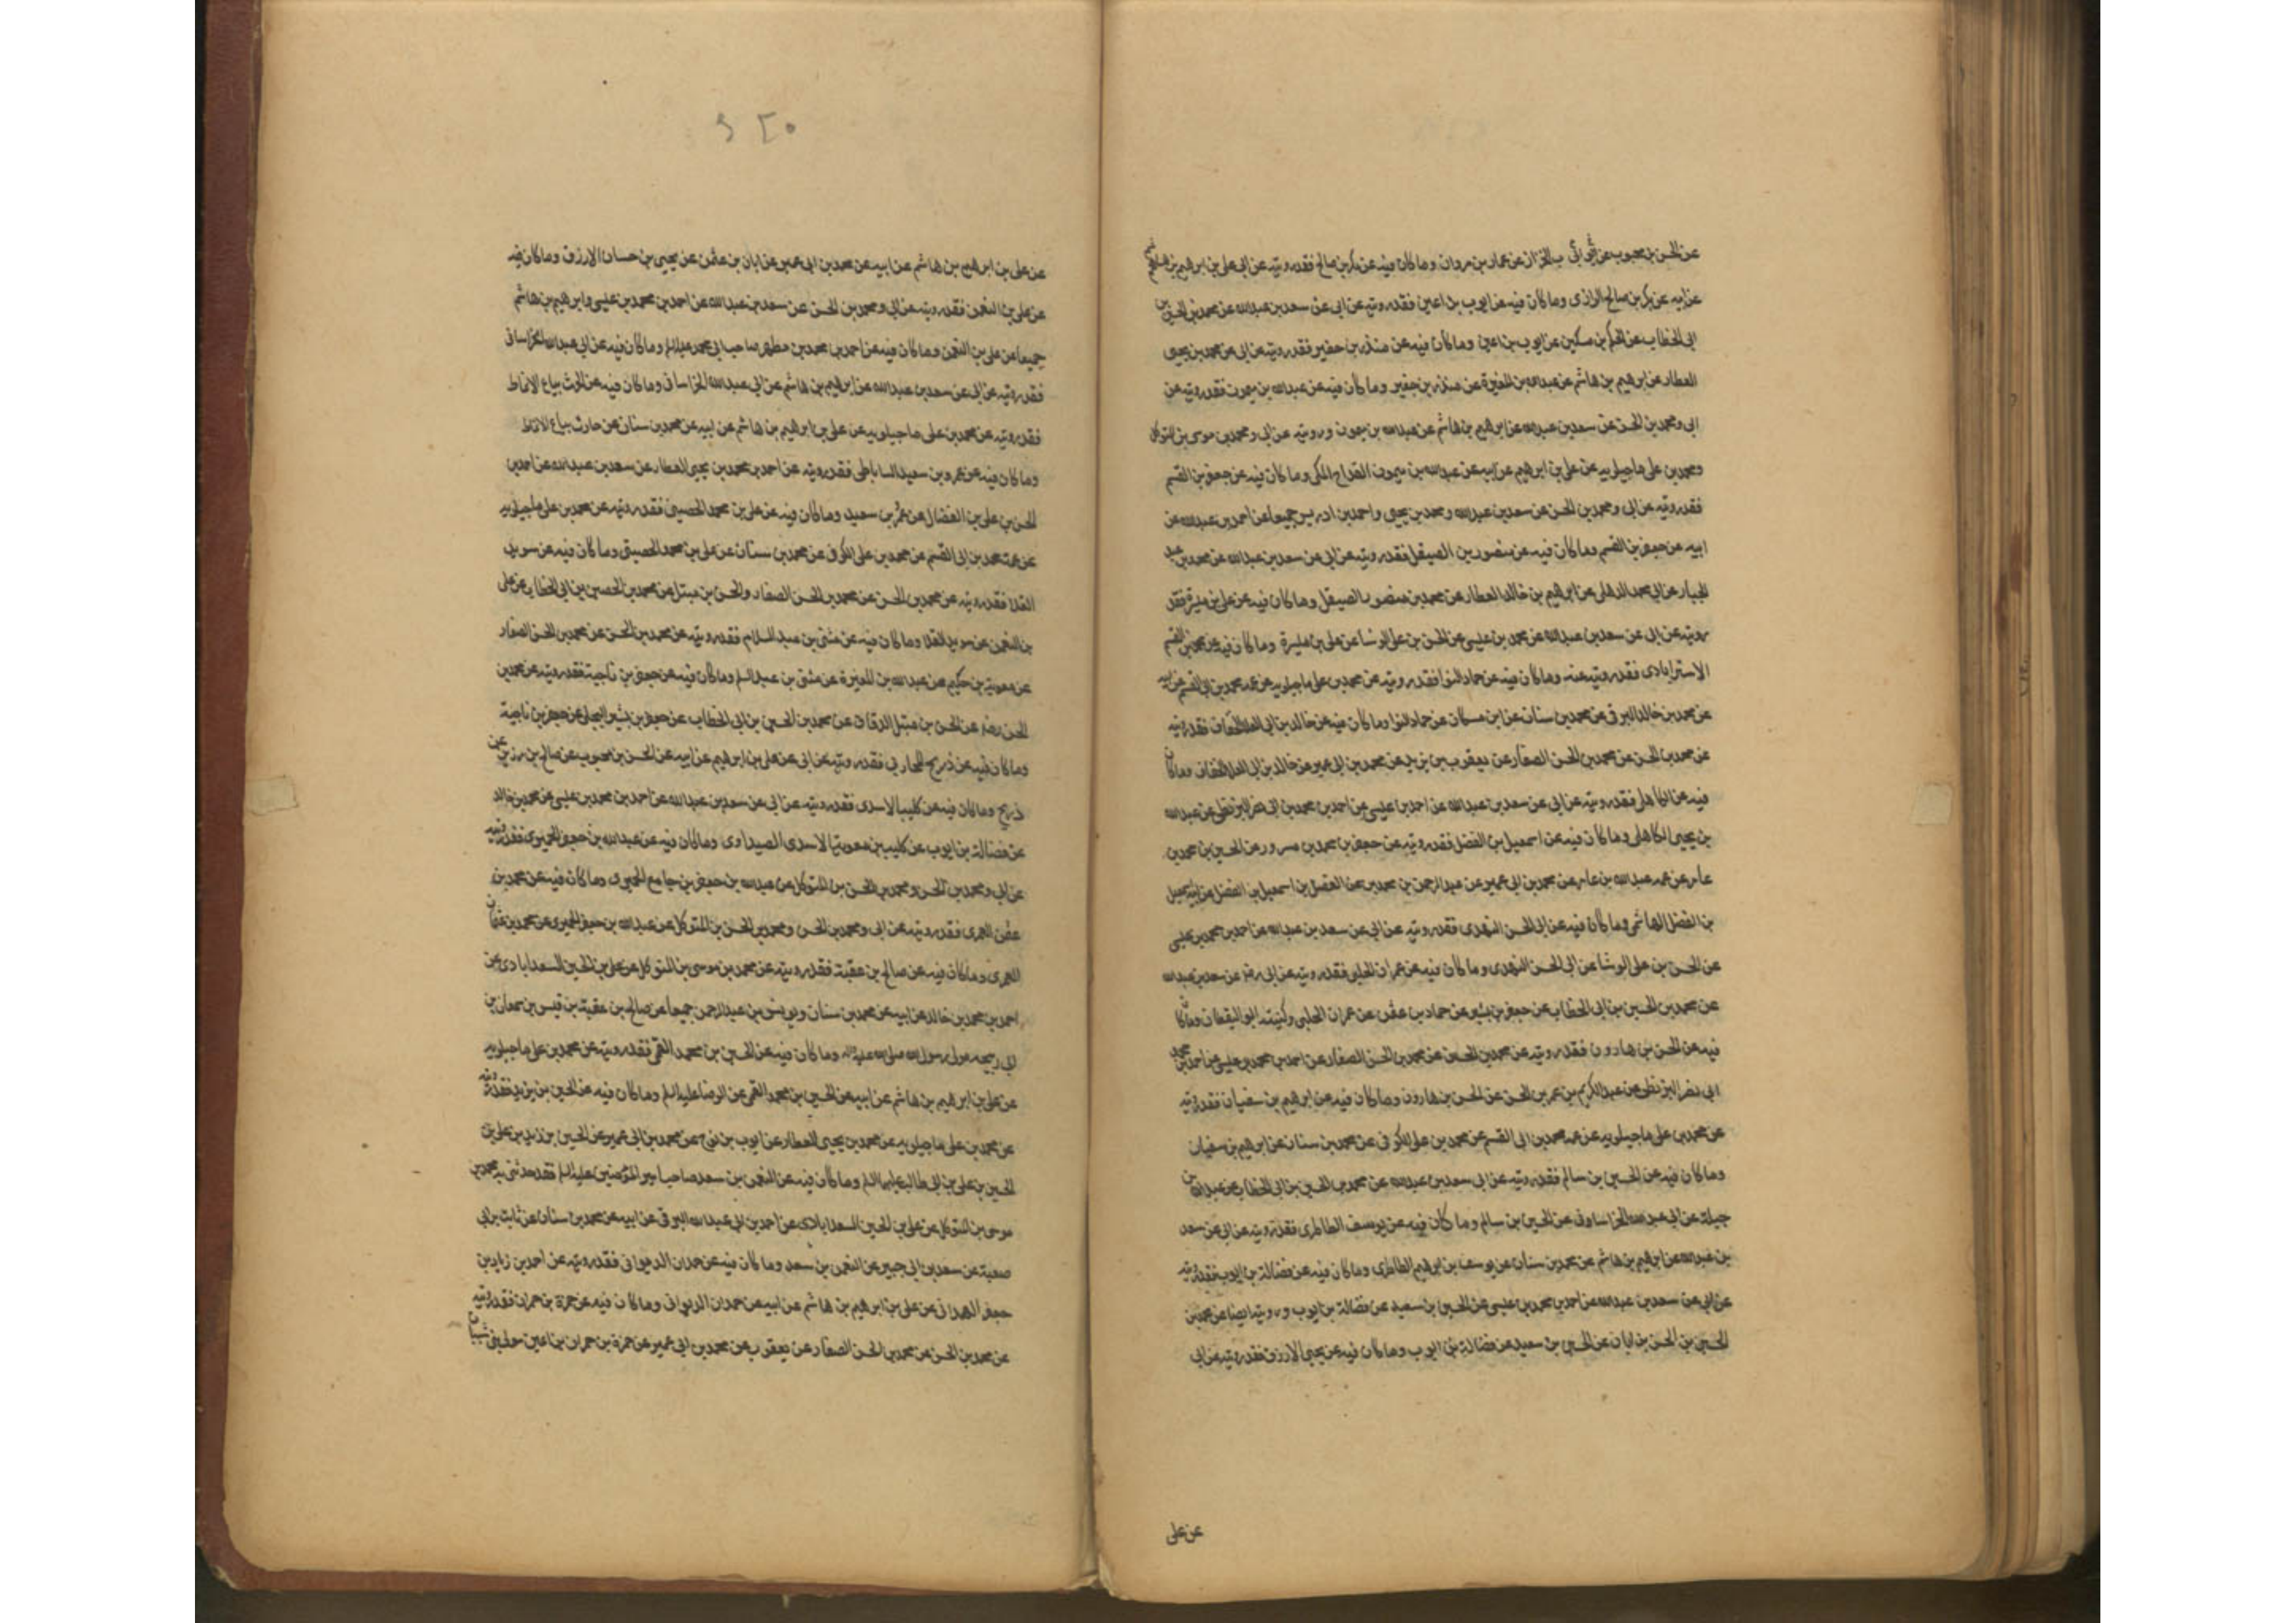 عن الحسن بن محبوب عن أبي أيوب الخزاز عن عمار بن مروان وما كان فيه عن بكر بن صالح فقد رويته عن ابي علي بن ابرهيم بن هاشم
عن ابيه عن بكر بن صالح الرازى وما كان فيه عن ايوب بن اعين فقد رويته عن ابى عن سعد بن عبد الله عن محمد بن الحسين بن
ابى الخطاب عن الحكم بن مسكين عن ايوب بن اعين وما كان فيه عن منذر بن جفير فقد رويته عن ابى عن محمد بن يحيى
العطار عن ابرهيم بن هاشم عن عبد الله بن المغيرة عن منذر بن جفير وما كان فيه عن عبد الله بن ميمون فقد رويته عن
ابى ومحمد بن الحسن عن سعد بن عبد الله عن ابرهيم بن هاشم عن عبد الله بن ميمون ورويته عن ابى ومحمد بن موسى بن المتوكل
ومحمد بن على ماجيلويه عن على بن ابرهيم عن ابيه عن عبد الله بن ميمون القداح المكى وما كان فيه عن جعفر بن القسم
فقد رويته عن ابى ومحمد بن الحسن عن سعد بن عبد الله ومحمد بن يحيى واحمد بن ادريس جميعا عن احمد بن عبد الله عن
ابيه عن جعفر بن القسم وما كان فيه عن منصور بن الصيقل فقد رويته عن ابى عن سعد بن عبد الله عن محمد بن عبد
الجبار عن ابى محمد الذهلى عن ابرهيم بن خالد العطار عن محمد بن منصور الصيقل وما كان فيه عن على بن ميسرة فقد
رويته عن ابى عن سعد بن عبد الله عن محمد بن عيسى عن الحسن بن على الوشا عن على بن ميسرة وما كان فيه عن محمد بن القسم
الاسترابادى فقد رويته عنه وما كان فيه عن حماد النوا فقد رويته عن محمد بن على ماجيلويه عن عمه محمد بن ابى القسم عن ابيه
عن محمد بن خالد البرقى عن محمد بن سنان عن ابن مسكان عن حماد النوا وما كان فيه عن خالد بن ابى العلا الخفاف فقد رويته
عن محمد بن الحسن عن محمد بن الحسن الصفار عن يعقوب بن يزيد عن محمد بن ابى عمير عن خالد بن ابى العلا الخفاف وما كان
فيه عن الكاهلى فقد رويته عن ابى عن سعد بن عبد الله عن احمد بن عيسى عن احمد بن محمد بن ابى نصر البزنطى عن عبد الله
بن يحيى الكاهلى وما كان فيه عن اسمعيل بن الفضل فقد رويته عن جعفر بن محمد بن مسرور عن الحسين بن محمد بن
عامر عن عمه عبد الله بن عامر عن محمد بن ابى عمير عن عبد الرحمن بن محمد عن الفضل بن اسمعيل بن الفضل عن ابيه اسمعيل
بن الفضل الهاشمى وما كان فيه عن ابى الحسن النهدى فقد رويته عن ابى عن سعد بن عبد الله عن احمد بن محمد بن عيسى
عن الحسن بن على الوشا عن ابى الحسن النهدى وما كان فيه عن عمران الحلبى فقد رويته عن ابى رضه عن سعد بن عبد الله
عن محمد بن الحسين بن ابى الخطاب عن جعفر بن بشير عن حماد بن عثمن عن عمران الحلبى وكنيته ابو اليقظان وما كان
فيه عن الحسن بن هارون فقد رويته عن محمد بن الحسين عن محمد بن الحسن الصفار عن احمد بن محمد بن عيسى عن احمد بن محمد
ابى نصر البزنطى عن عبد الكريم بن عمر بن الحسن عن الحسن بن هارون وما كان فيه عن ابرهيم بن سفيان فقد رويته
عن محمد بن على ماجيلويه عن عمه محمد بن ابى القسم عن محمد بن على الكوفى عن محمد بن سنان عن ابرهيم بن سفيان
وما كان فيه عن الحسين بن سالم فقد رويته عن ابى سعد بن عبد الله عن محمد بن الحسين بن ابى الخطاب عن عبد الله بن
جبلة عن ابى عبد الله الخراسانى عن الحسين بن سالم وما كان فيه عن يوسف الطاطرى فقد رويته عن ابى عن سعد
بن عبد الله عن ابرهيم بن هاشم عن محمد بن سنان عن يوسف بن ابرهيم الطاطرى وما كان فيه عن فضالة بن ايوب فقد رويته
عن ابى عن سعد بن عبد الله عن احمد بن محمد بن عيسى عن الحسين بن سعيد عن فضالة بن ايوب ورويته ايضا عن محمد بن
الحسين بن الحسن بن ابان عن الحسين بن سعيد عن فضالة بن ايوب وما كان فيه عن يحيى الازرق فقد رويته عن ابى
عن على
عن على بن ابرهيم بن هاشم عن ابيه عن محمد بن ابى عمير عن ابان بن عثمن عن يحيى بن حسان الازرق وما كان فيه
عن على بن النعمن فقد رويته عن ابى ومحمد بن الحسن عن سعد بن عبد الله عن احمد بن محمد بن عيسى وابرهيم بن هاشم
جميعا عن على بن النعمن وما كان فيه عن احمد بن محمد بن مطهر صاحب ابى محمد عليه السلم وما كان فيه عن ابى عبد الله الخراسانى
فقد رويته عن ابى عن سعد بن عبد الله عن ابرهيم بن هاشم عن ابى عبد الله الخراسانى وما كان فيه عن الحرث بياع الانماط
فقد رويته عن محمد بن على ماجيلويه عن على بن ابرهيم بن هاشم عن ابيه عن محمد بن سنان عن حارث بياع الانماط
وما كان فيه عن عمرو بن سعيد الساباطى فقد رويته عن احمد بن محمد بن يحيى العطار عن سعد بن عبد الله عن احمد بن
الحسن بن على بن الفضال عن عمرو بن سعيد وما كان فيه عن على بن محمد الحصينى فقد رويته عن محمد بن على ماجيلويه
عن عمه محمد بن ابى القسم عن محمد بن على الكوفى عن محمد بن سنان عن على بن محمد الحصينى وما كان فيه عن سويد
القلا فقد رويته عن محمد بن الحسن عن محمد بن الحسن الصفار والحسن بن متيل عن محمد بن الحسين بن ابى الخطاب عن على
بن النعمن عن سويد القلا وما كان فيه عن مثنى بن عبد السلام فقد رويته عن محمد بن الحسن عن محمد بن الحسن الصفار
عن معوية بن حكيم عن عبد الله بن المغيرة عن مثنى بن عبد السلم وما كان فيه عن جعفر بن ناجية فقد رويته عن محمد بن
الحسن رضه عن الحسن بن متيل الدقاق عن محمد بن الحسين بن ابى الخطاب عن جعفر بن بشير البجلى عن جعفر بن ناجية
وما كان فيه عن ذريح المحاربى فقد رويته عن ابى عن على بن ابرهيم عن ابيه عن الحسن بن محبوب عن صالح بن رزين عن
ذريح وما كان فيه عن كليب الاسدى فقد رويته عن ابى عن سعد بن عبد الله عن احمد بن محمد بن عيسى عن محمد بن خالد
عن فضالة بن ايوب عن كليب بن معوية الاسدى الصيداوى وما كان فيه عن عبد الله بن جعفر الحميرى فقد رويته
عن ابى ومحمد بن الحسن ومحمد بن الحسن بن المتوكل عن عبد الله بن جعفر بن جامع الحميرى وما كان فيه عن محمد بن
عثمن العمرى فقد رويته عن ابى ومحمد بن الحسن ومحمد بن الحسن بن المتوكل عن عبد الله بن جعفر الحميرى عن محمد بن عثمان
العمرى وما كان فيه عن صالح بن عقبة فقد رويته عن محمد بن موسى بن المتوكل عن على بن الحسين السعدابادى عن
احمد بن محمد بن خالد عن ابيه عن محمد بن سنان ويونس بن عبد الرحمن جميعا عن صالح بن عقبة بن قيس بن سمعان بن
ابى ربيحه مولى رسول الله صلى الله عليه واله وما كان فيه عن الحسين بن محمد القمى فقد رويته عن محمد بن على ماجيلويه
عن على بن ابرهيم بن هاشم عن ابيه عن الحسين بن محمد القمى عن الرضا عليه السلم وما كان فيه عن الحسين بن زيد فقد رويته
عن محمد بن على ماجيلويه عن محمد بن يحيى العطار عن ايوب بن نوح عن محمد بن ابى عمير عن الحسين بن زيد بن على بن
الحسين بن على بن ابى طالب عليهما السلم وما كان فيه عن النعمن بن سعد صاحب امير المؤمنين عليه السلم فقد حدثنى به محمد بن
موسى بن المتوكل عن على بن الحسين السعدابادى عن احمد بن ابى عبد الله البرقى عن ابيه عن محمد بن سنان عن ثابت بن ابى
صفية عن سعد بن ابى جبير عن النعمن بن سعد وما كان فيه عن حمدان الديوانى فقد رويته عن احمد بن زياد بن
جعفر الهمدانى عن على بن ابرهيم بن هاشم عن ابيه عن حمدان الديوانى وما كان فيه عن حمزة بن حمران فقد رويته
عن محمد بن الحسن عن محمد بن الحسن الصفار عن يعقوب عن محمد بن ابى عمير عن حمزة بن حمران بن اعين مولى بنى شيبان